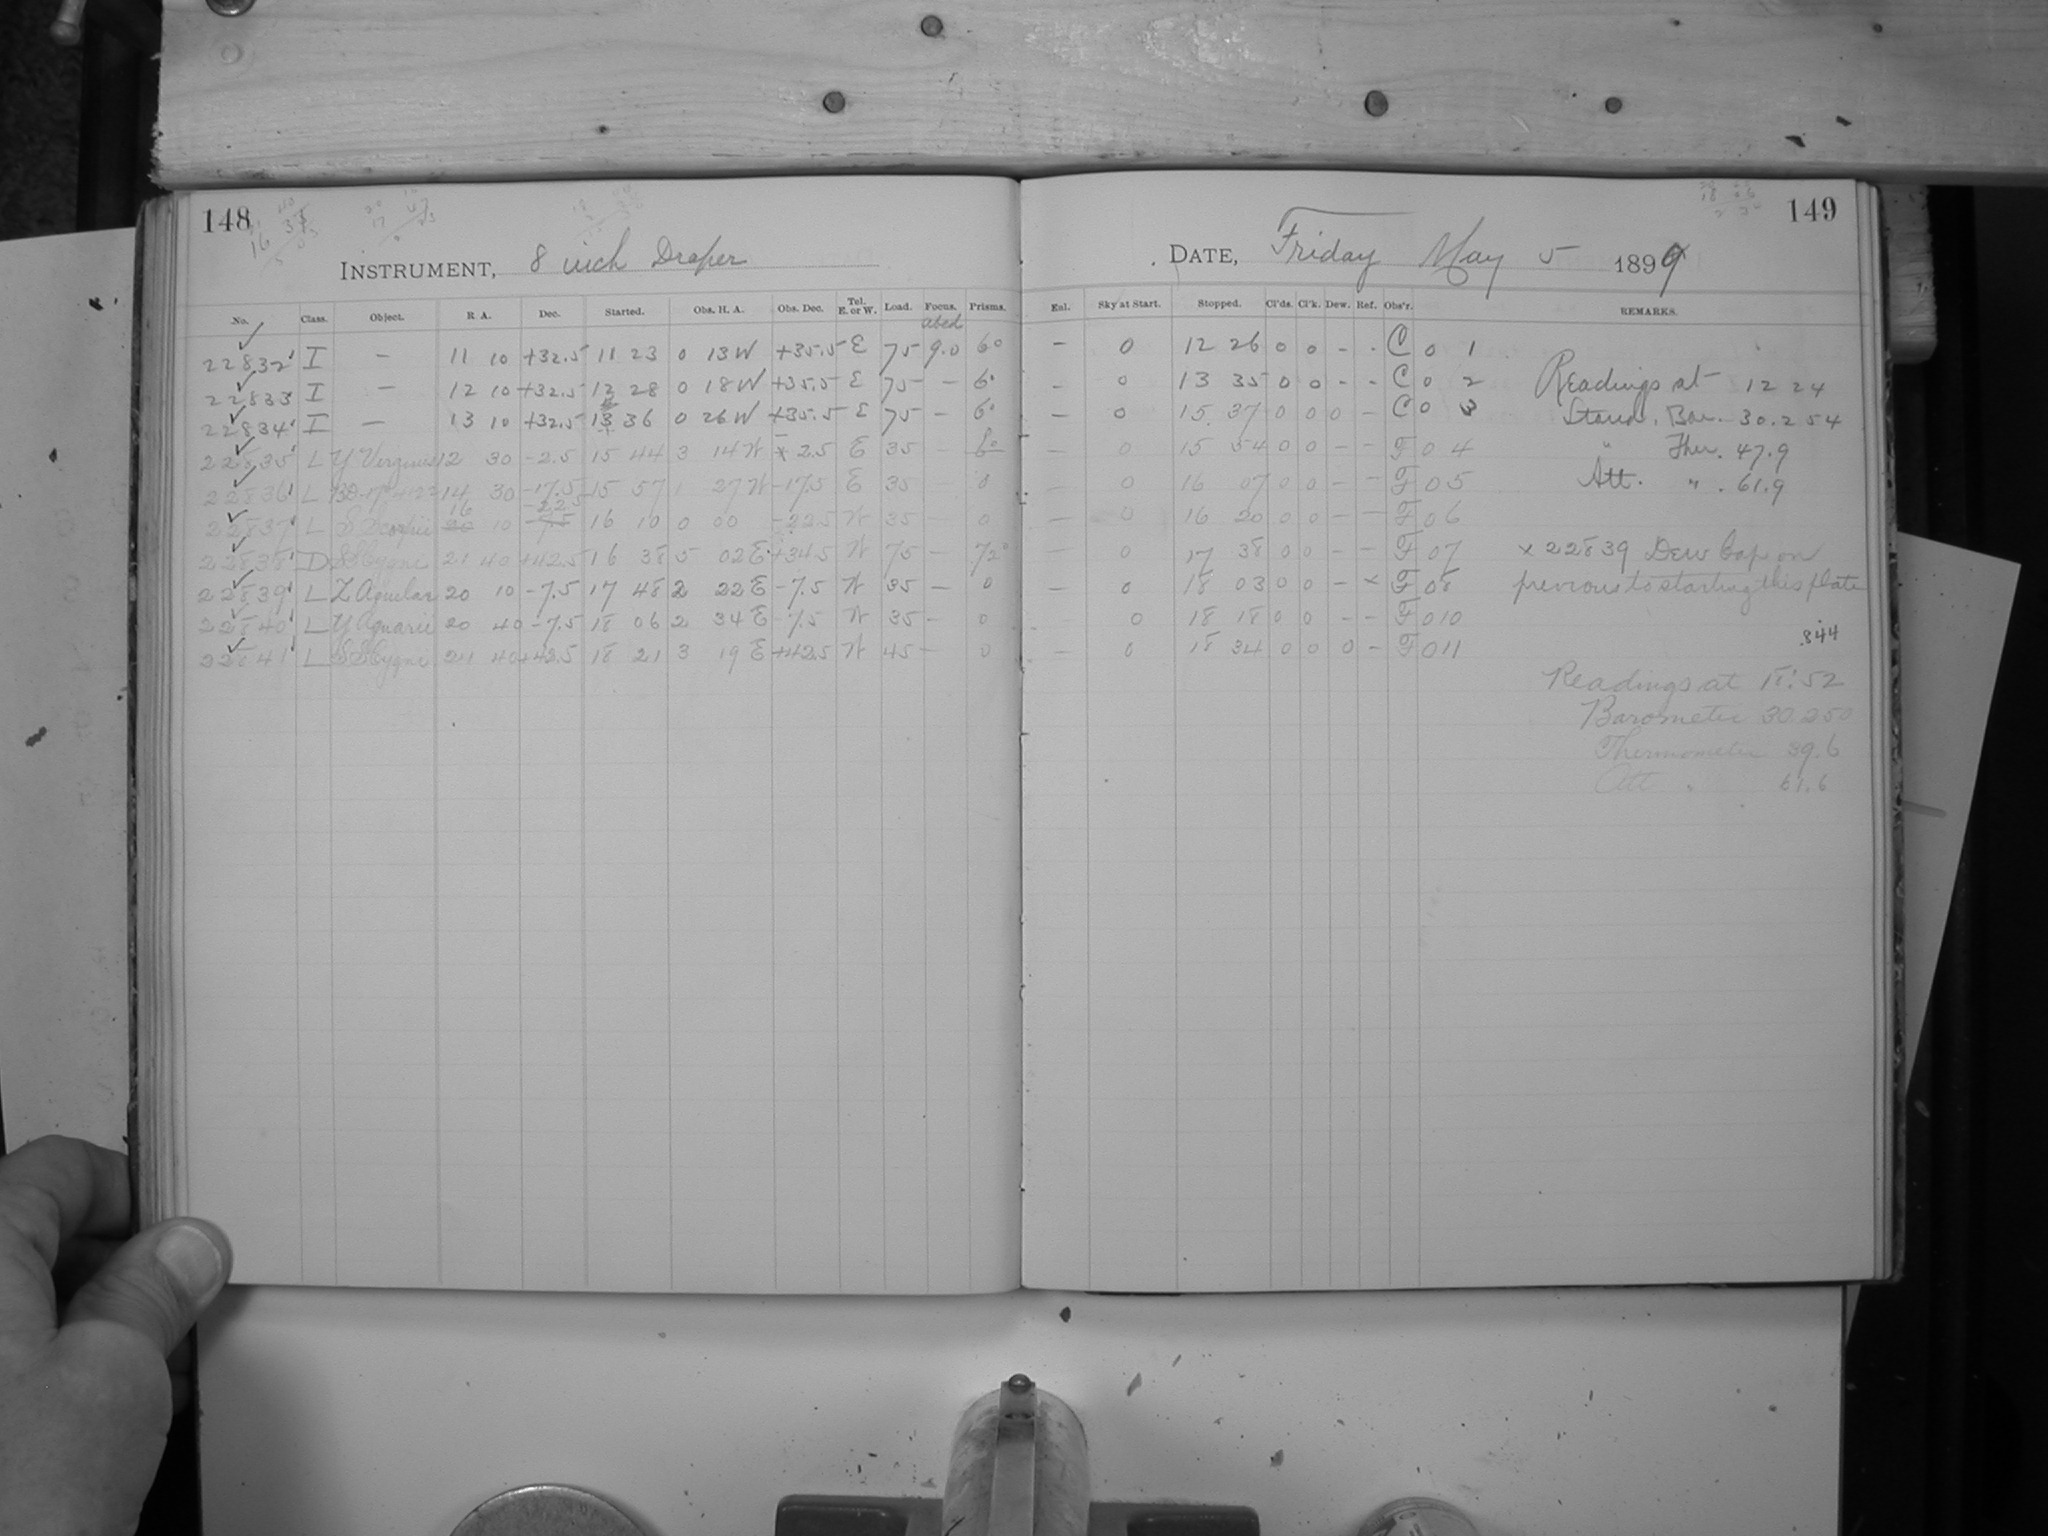 148
INSTRUMENT, 8 inch Draper
No. Class. Object. R. A. Dec. Started. Obs. H. A. Obs. Dec. Tel. E. or W. Load. Focus. Prisms.
abcd
22832 I — 11 10 +32.5 11 23 0 13 W +35.5 E 75 9.0 6°
22833 I — 12 10 +32.5 12 28 0 18 W +35.5 E 75 — 6°
22834 I — 13 10 +32.5 13 36 0 26 W +35.5 E 75 — 6°
22835 L Y Virginis 12 30 -2.5 15 44 3 14 W -2.5 E 35 —
22836 L 14 30 -17.5 15 57 1 27 W -17.5 E 35 0
16 -22.5
22837 L S Scorpii 10 16 10 0 00 -22.5 W 35 0
22838 D SS Cygni 21 40 +42.5 16 38 5 02 E +34.5 W 75 — 7
22839 L Z Aquilae 20 10 -7.5 17 48 2 22 E -7.5 W 35 — 0
22840 L Y Aquarii 20 40 -7.5 18 06 2 34 E -7.5 W 35 — 0
22841 L SS Cygni 21 40 +42.5 18 21 3 19 E +42.5 W 45 — 0
149
DATE, Friday May 5 1899
Enl. Sky at Start. Stopped. Cl'ds. Cl'k. Dew. Ref. Obs'r. REMARKS.
— 0 12 26 0 0 - - C 0 1
— 0 13 35 0 0 - - C 0 2 Readings at 12 24
— 0 15 37 0 0 0 - C 0 3 Stand. Bar. 30.254
— 0 15 54 0 0 - - F 0 4 " Ther. 47.9
— 0 16 07 0 0 - - F 0 5 Att. " . 61.9
— 0 16 20 0 0 - - F 0 6
— 0 17 38 0 0 - - F 0 7 x 22839 Dew Cap on
— 0 18 03 0 0 - x F 0 8 previous to starting this plate
0 18 18 0 0 - - F 0 10
— 0 18 34 0 0 0 - F 0 11 .844
Readings at 18:52
Barometer 30.250
Thermometer 39.6
Att " 61.6